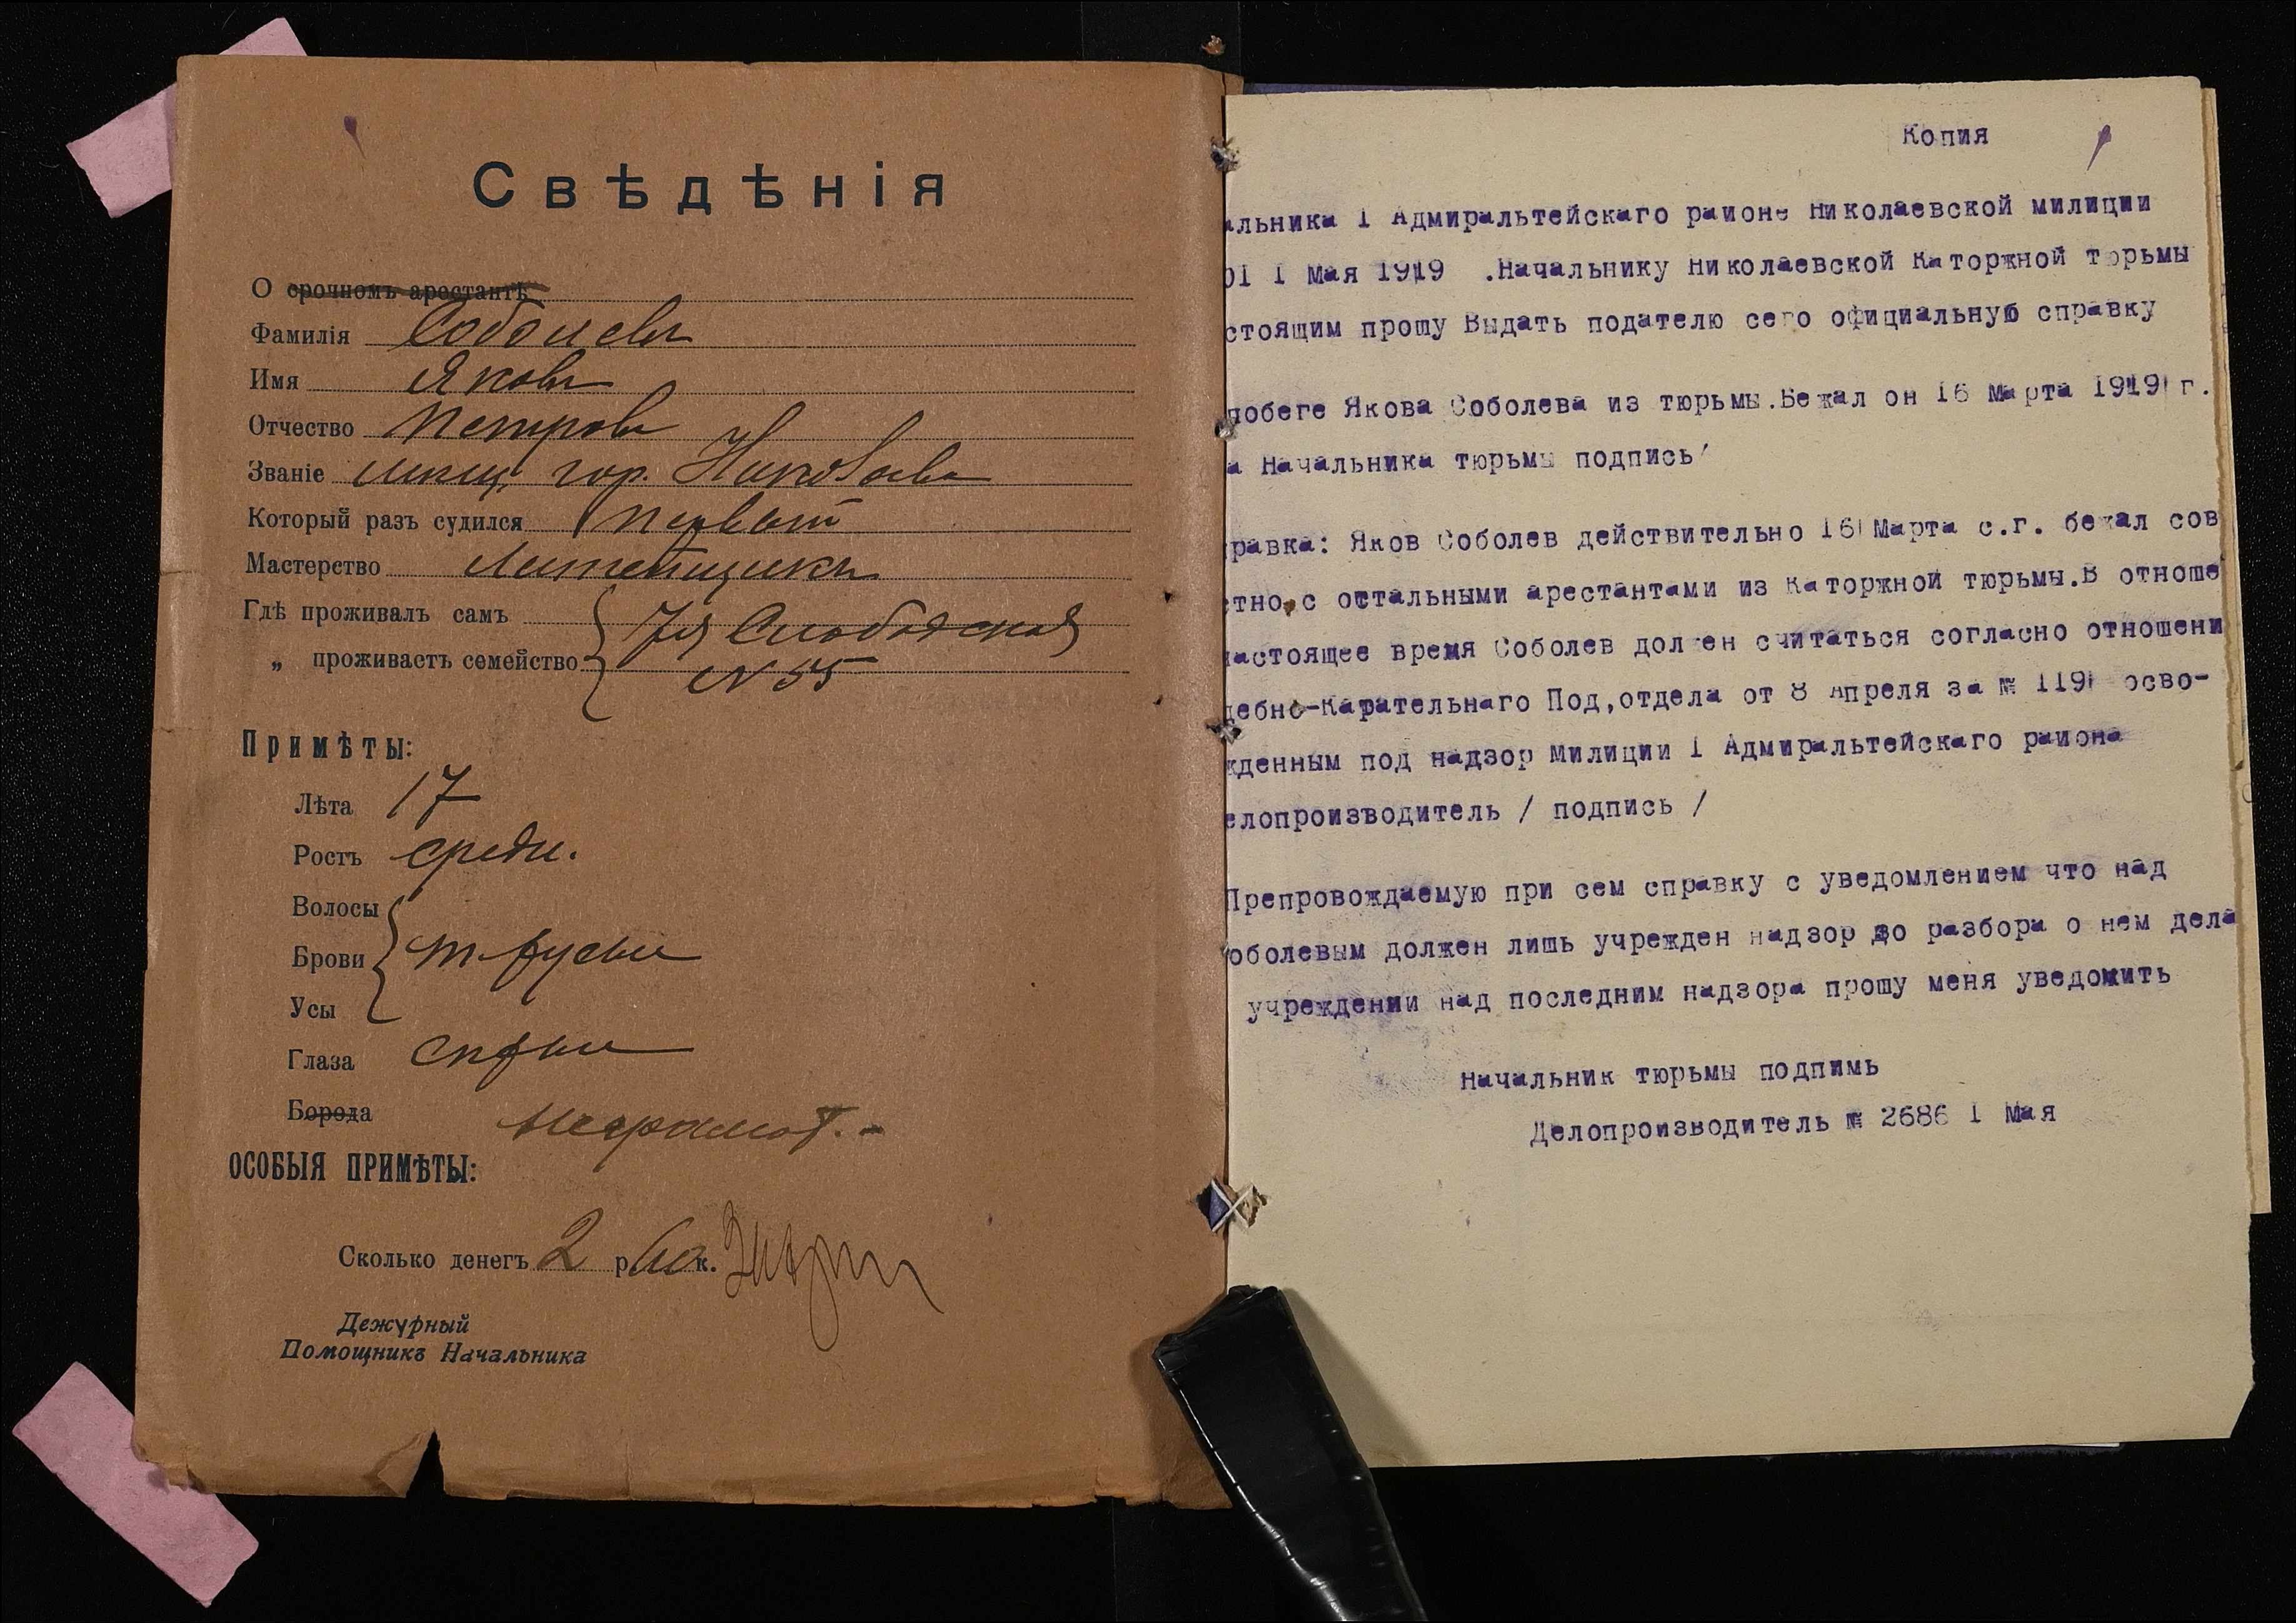 Свѣдѣнія
О срочномъ арестантѣ
Фамилія Соболевъ
Имя Яковъ
Отчество Петровъ
Званіе мѣщ. гор. Николаева
Который разъ судился первый
Мастерство Литейщикъ
Гдѣ проживалъ самъ 7я Слободская
„ проживаетъ семейство № 55
Примѣты:
Лѣта 17
Ростъ средн.
Волосы
Брови т-русые
Усы
Глаза сѣрые
Борода
неграмот.
ОСОБЫЯ ПРИМѢТЫ:
Сколько денегъ 2 р. 60 к.
Дежурный
Помощникъ Начальника
Копия
альника I Адмиральтейскаго раионе Николаевской милиции
01 I Мая 1919 .Начальнику Николаевской Каторжной тюрьмы
стоящим прошу Выдать подателю сего официальную справку
побеге Якова Соболева из тюрьмы.Бежал он 16 Марта 1919 г.
а Начальника тюрьмы подпись/
равка: Яков Соболев действительно 16 Марта с.г. бежал сов
стно с остальными арестантами из Каторжной тюрьмы.В отноше
настоящее время Соболев должен считаться согласно отношени
дебно-Карательнаго Под,отдела от 8 Апреля за № 119 осво-
жденным под надзор Милиции I Адмиральтейскаго раиона
елопроизводитель / подпись /
Препровождаемую при сем справку с уведомлением что над
оболевым должен лишь учрежден надзор до разбора о нем дела
учреждении над последним надзора прошу меня уведомить
Начальник тюрьмы подпимь
Делопроизводитель № 2686 I Мая